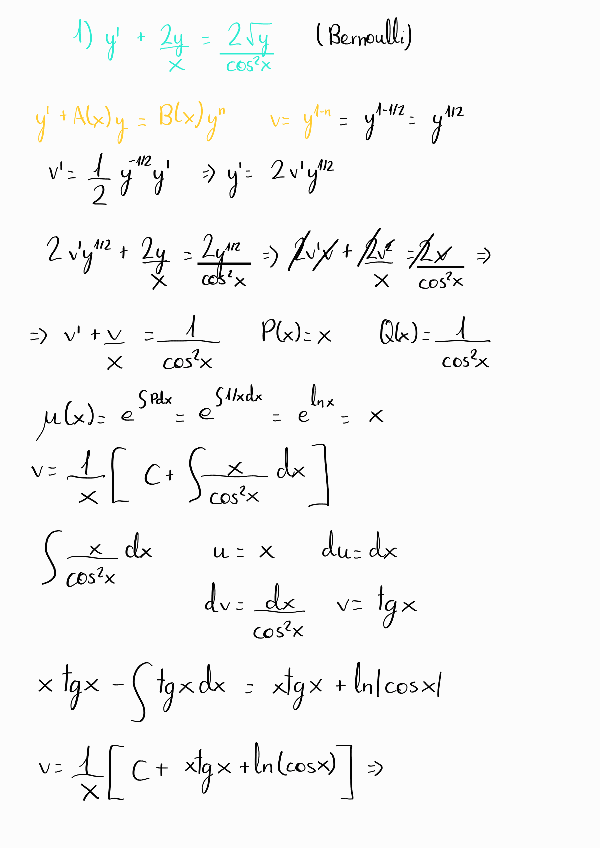 1) y' + 2y/x = 2√y/cos²x (Bernoulli)
y' + A(x)y = B(x)yⁿ v = y¹⁻ⁿ = y¹⁻¹/² = y¹/²
v' = 1/2 y⁻¹/² y' ⇒ y' = 2v'y¹/²
2v'y¹/² + 2y/x = 2y¹/²/cos²x ⇒ 2v'v + 2v²/x = 2v/cos²x ⇒
⇒ v' + v/x = 1/cos²x P(x) = x Q(x) = 1/cos²x
μ(x) = e^∫Pdx = e^∫1/xdx = e^lnx = x
v = 1/x [ C + ∫ x/cos²x dx ]
∫ x/cos²x dx u = x du = dx
dv = dx/cos²x v = tgx
x tgx - ∫ tgx dx = xtgx + ln|cosx|
v = 1/x [ C + xtgx + ln(cosx) ] ⇒